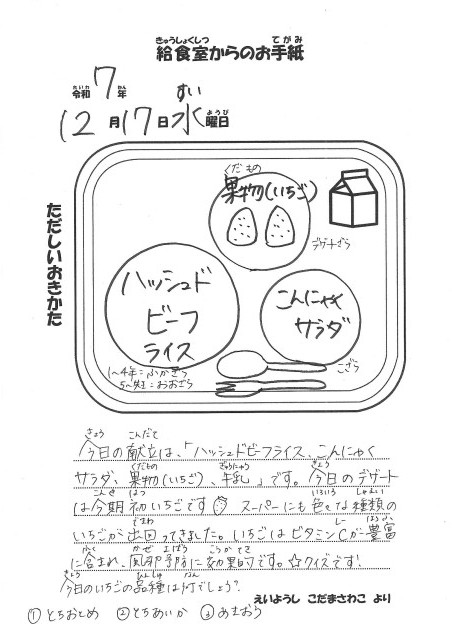 給食室からのお手紙
きゅうしょくしつ てがみ
令和7年
れいわ ねん
12月17日水曜日
すい ようび
ただしいおきかた
くだもの
果物(いちご)
デザートざら
ハッシュド
ビーフ
ライス
こんにゃく
サラダ
こざら
1~4年:ふかざら
おおざら
きょう こんだて
今日の献立は、「ハッシュドビーフライス、こんにゃく
くだもの ぎゅうにゅう きょう
サラダ、果物(いちご)、牛乳」です。今日のデザート
こんき はつ いろいろ しゅるい
は今期初いちごです スーパーにも色々な種類の
でまわ シー ほうふ
いちごが出回ってきました。いちごはビタミンCが豊富
ふく かぜ よぼう こうかてき
に含まれ、風邪予防に効果的です。☆クイズです!
きょう ひんしゅ なん
今日のいちごの品種は何でしょう?
えいようし こだまさわこ より
①とちおとめ ②とちあいか ③あまおう